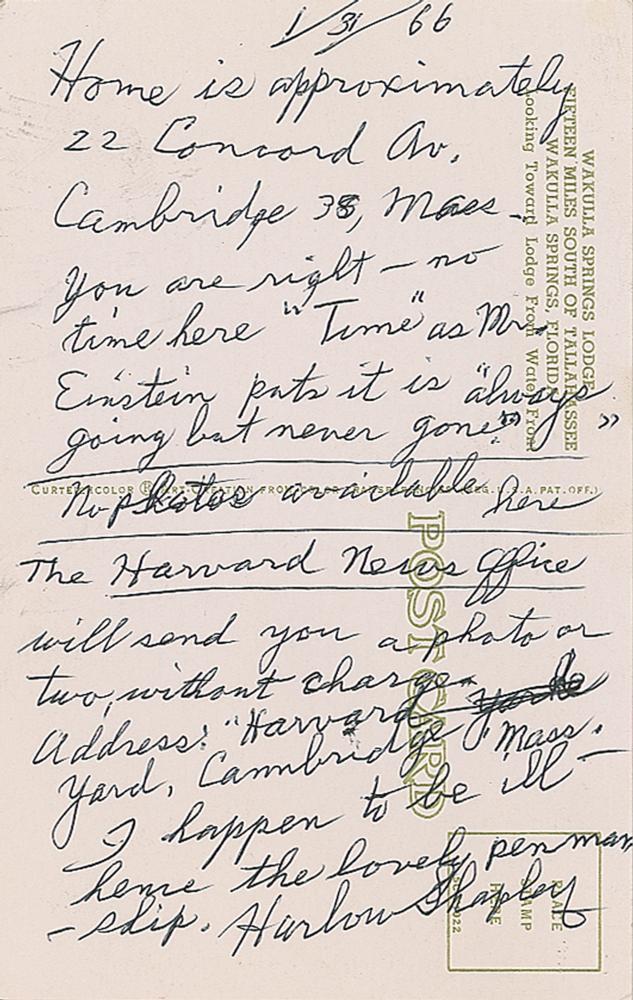 1/31/66
Home is approximately
22 Concord Av.
Cambridge 38, Mass.
You are right – no
time here "Time" as Mr.
Einstein puts it is "always
going but never gone"
No photos available here
The Harvard News Office
will send you a photo or
two, without charge.
Address: "Harvard
Yard, Cannbridge, Mass.
I happen to be ill –
hence the lovely penman
– ship. Harlow Shapley
WAKULLA SPRINGS LODGE
FIFTEEN MILES SOUTH OF TALLAHASSEE
WAKULLA SPRINGS, FLORIDA
Looking Toward Lodge From Water Front
CURTEICHCOLOR ® ART-CREATION FROM COLOR (REG. U.S.A. PAT. OFF.)
POST CARD
PLACE
STAMP
HERE